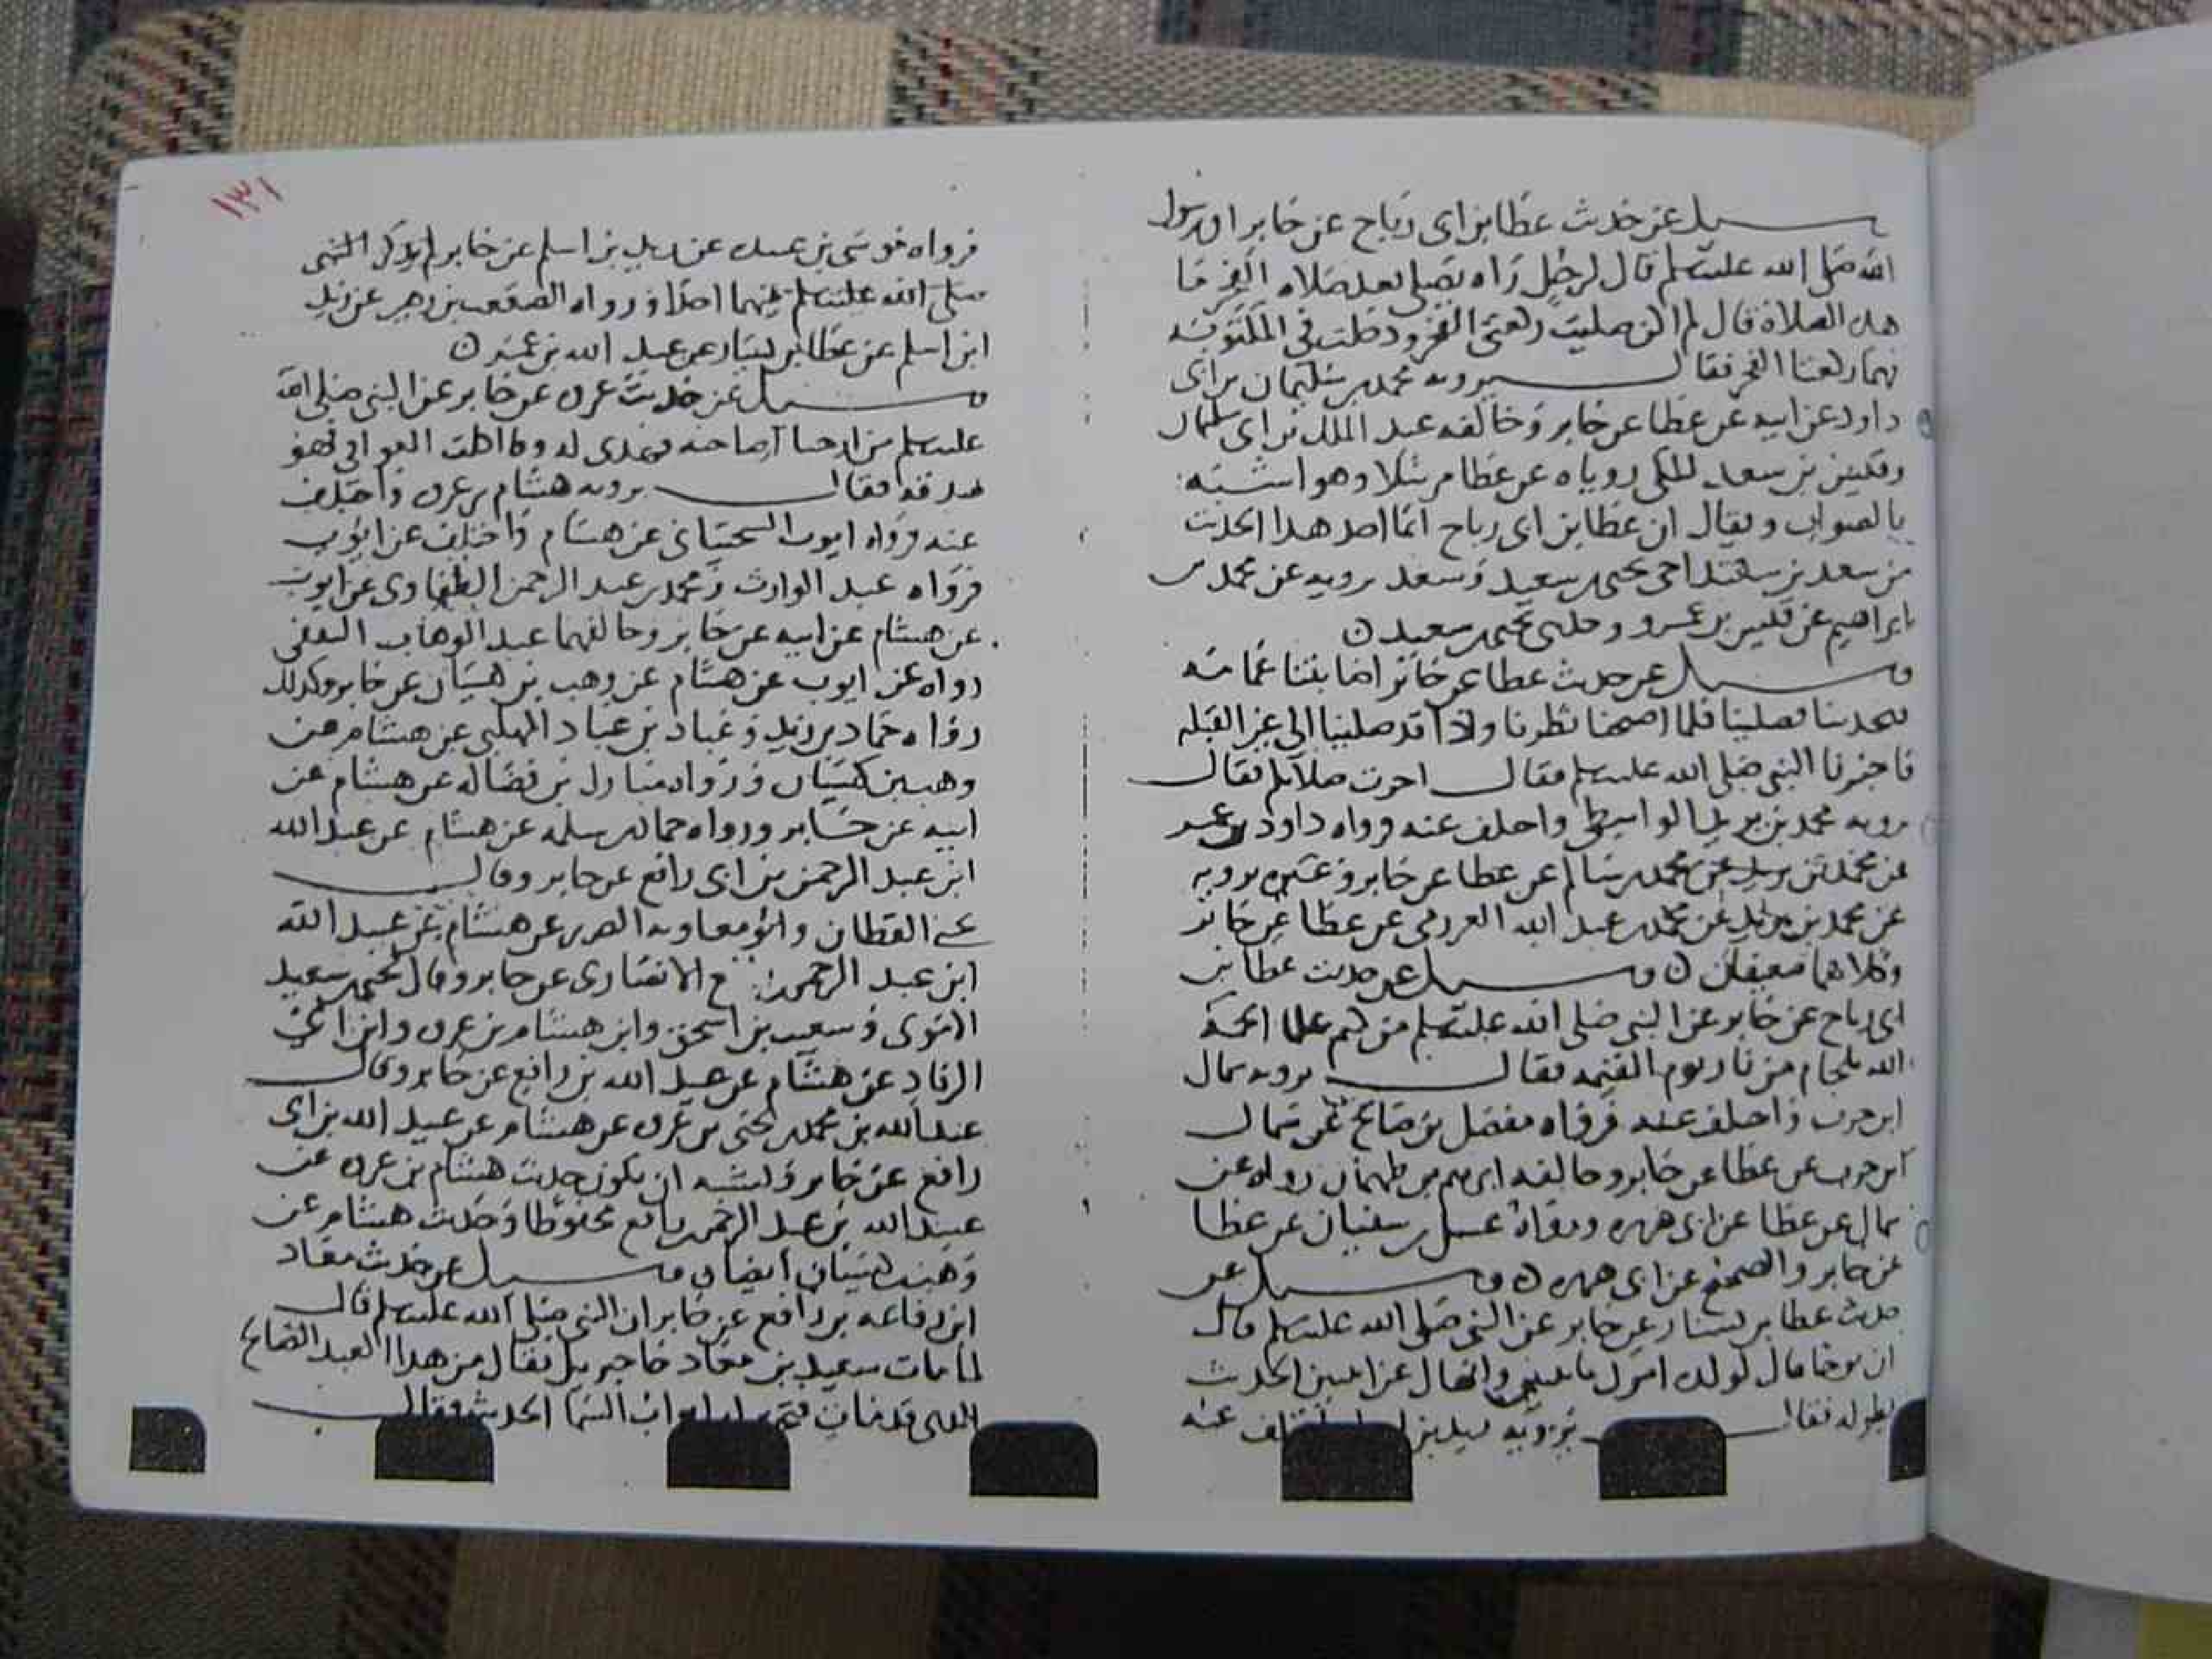 سئل عن حديث عطا بن ابي رباح عن جابر ان رسول
الله صلى الله عليه وسلم قال لرجل راه يصلي بعد صلاه الفجر ما
هذه الصلاة قال لم اكن صليت ركعتي الفجر ودخلت في المكتوبه
فهما ركعتا الفجر فقال يرويه محمد بن سليمان بن ابي
داود عن ابيه عن عطا عن جابر وخالفه عبد الملك بن ابي سليمان
وقيس بن سعد المكي روياه عن عطا مرسلا وهو اشبه
بالصواب ويقال ان عطا بن ابي رباح انما اخذ هذا الحديث
من سعد بن سعيد اخي يحيى بن سعيد وسعد يرويه عن محمد بن
ابراهيم عن قيس بن عمرو وجد يحيى بن سعيد ن
وسئل عن حديث عطا عن جابر اصابتنا غمامة
فصلينا فلما اصبحنا نظرنا واذا قد صلينا الى غير القبله
فاخبرنا النبي صلى الله عليه وسلم فقال اجزت صلاتكم فقال
يرويه محمد بن يزيد الواسطي واختلف عنه فرواه داود بن عمرو
عن محمد بن يزيد عن محمد بن سالم عن عطا عن جابر وغيره يرويه
عن محمد بن يزيد عن محمد بن عبد الله العرزمي عن عطا عن جابر
وكلاهما ضعيفان ن وسئل عن حديث عطا بن
ابي رباح عن جابر عن النبي صلى الله عليه وسلم من كتم علما الجمه
الله بلجام من نار يوم القيمه فقال يرويه سماك
ابن حرب واختلف عنه فرواه مفضل بن صالح عن سماك
ابن حرب عن عطا عن جابر وخالفه ابرهيم بن طهمان رواه عن
سماك عن عطا عن ابي هريره ورواه عسل بن سفيان عن عطا
عن جابر والصحيح عن ابي هريره ن وسئل عن
حديث عطا بن يسار عن جابر عن النبي صلى الله عليه وسلم قال
ان نوحا قال لولده امرك باثنين وانهاك عن اثنين الحديث
بطوله فقال يرويه زيد بن اسلم واختلف عنه
١٣١
فرواه موسى بن عبيده عن زيد بن اسلم عن جابر لم يذكر النبي
صلى الله عليه وسلم بينهما احدا ورواه الصقعب بن زهير عن زيد
ابن اسلم عن عطا بن يسار عن عبد الله بن عمرو ن
وسئل عن حديث عروه عن جابر عن النبي صلى الله
عليه وسلم من احيا ارضا ميته فهي له وما اكلت العوافي فهو
صدقه فقال يرويه هشام بن عروه واختلف
عنه فرواه ايوب السختياني عن هشام واختلف عن ايوب
فرواه عبد الوارث ومحمد بن عبد الرحمن الطفاوي عن ايوب
عن هشام عن ابيه عن جابر وخالفهما عبد الوهاب الثقفي
رواه عن ايوب عن هشام عن وهب بن كيسان عن جابر وكذلك
رواه حماد بن زيد وعباد بن عباد المهلبي عن هشام عن
وهب بن كيسان ورواه مبارك بن فضاله عن هشام عن
ابيه عن جابر ورواه حماد بن سلمه عن هشام عن عبد الله
ابن عبد الرحمن بن ابي رافع عن جابر وقال
يحيى القطان وابو معاويه الضرير عن هشام عن عبيد الله
ابن عبد الرحمن الانصاري عن جابر وقال يحيى بن سعيد
الاموي وسعيد بن اسحق وابن هشام بن عروه وابن ابي
الزناد عن هشام عن عبيد الله بن رافع عن جابر وقال
عبد الله بن محمد بن يحيى بن عروه عن هشام عن عبيد الله بن ابي
رافع عن جابر ويشبه ان يكون حديث هشام بن عروه عن
عبيد الله بن عبد الرحمن بن رافع محفوظا وحديث هشام عن
وهب بن كيسان ايضا ن وسئل عن حديث معاذ
ابن رفاعه بن رافع عن جابر ان النبي صلى الله عليه وسلم قال
لما مات سعد بن معاذ جا جبريل فقال من هذا العبد الصالح
الذي قد مات فتحت له ابواب السما الحديث فقال